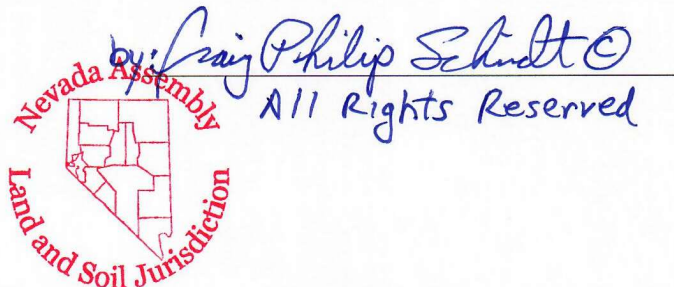 by: Craig Philip Schmidt ©
All Rights Reserved
Nevada Assembly
Land and Soil Jurisdiction